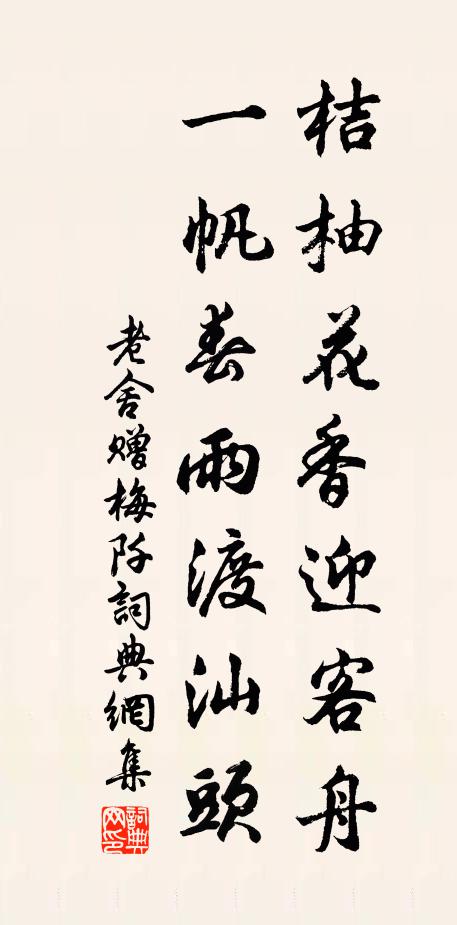 桔柚花香迎客舟
一帆春雨渡汕頭
老舍贈梅阡詞典網集
詞典
网印